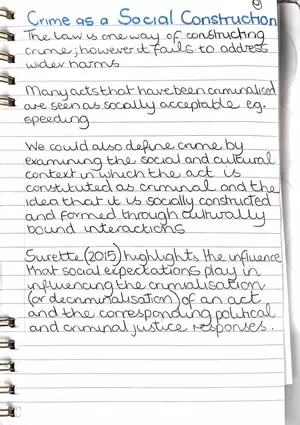 Crime as a Social Construction
The law is one way of constructing
crime; however it fails to address
wider harms
Many acts that have been criminalised
are seen as socially acceptable eg.
speeding
We could also define crime by
examining the social and cultural
context in which the act is
constituted as criminal and the
idea that it is socially constructed
and formed through culturally
bound interactions
Surette (2015) highlights the influence
that social expectations play in
influencing the crimialisation
(or decriminalisation) of an act
and the corresponding political
and criminal justice responses.